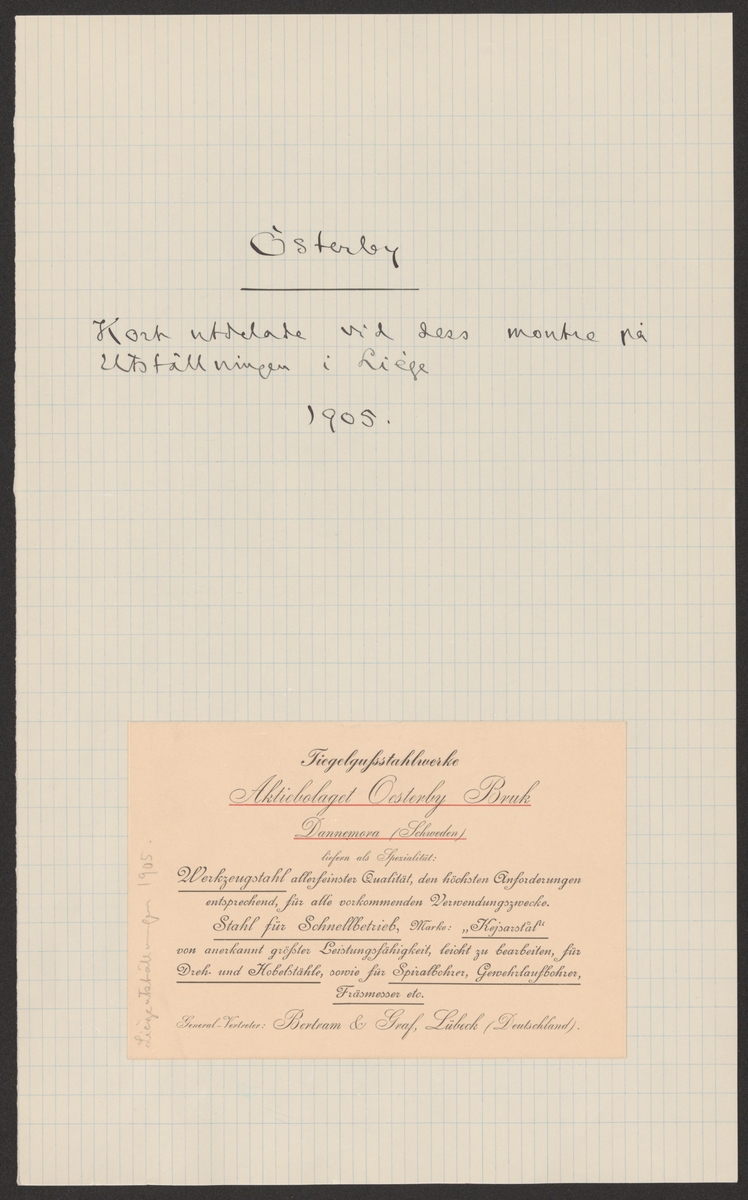 Österby
Kort utdelade vid dess montre på
Utställningen i Liége
1905.
Tiegelgußstahlwerke
Aktiebolaget Oesterby Bruk
Dannemora (Schweden)
liefern als Spezialität:
Werkzeugstahl allerfeinster Qualität, den höchsten Anforderungen
entsprechend, für alle vorkommenden Verwendungszwecke.
Stahl für Schnellbetrieb, Marke: „Kejsarstål“
von anerkannt größter Leistungsfähigkeit, leicht zu bearbeiten, für
Dreh- und Hobelstähle, sowie für Spiralbohrer, Gewehrlaufbohrer,
Fräsmesser etc.
General-Vertreter: Bertram & Graf, Lübeck (Deutschland).
Liégeutställningen 1905.